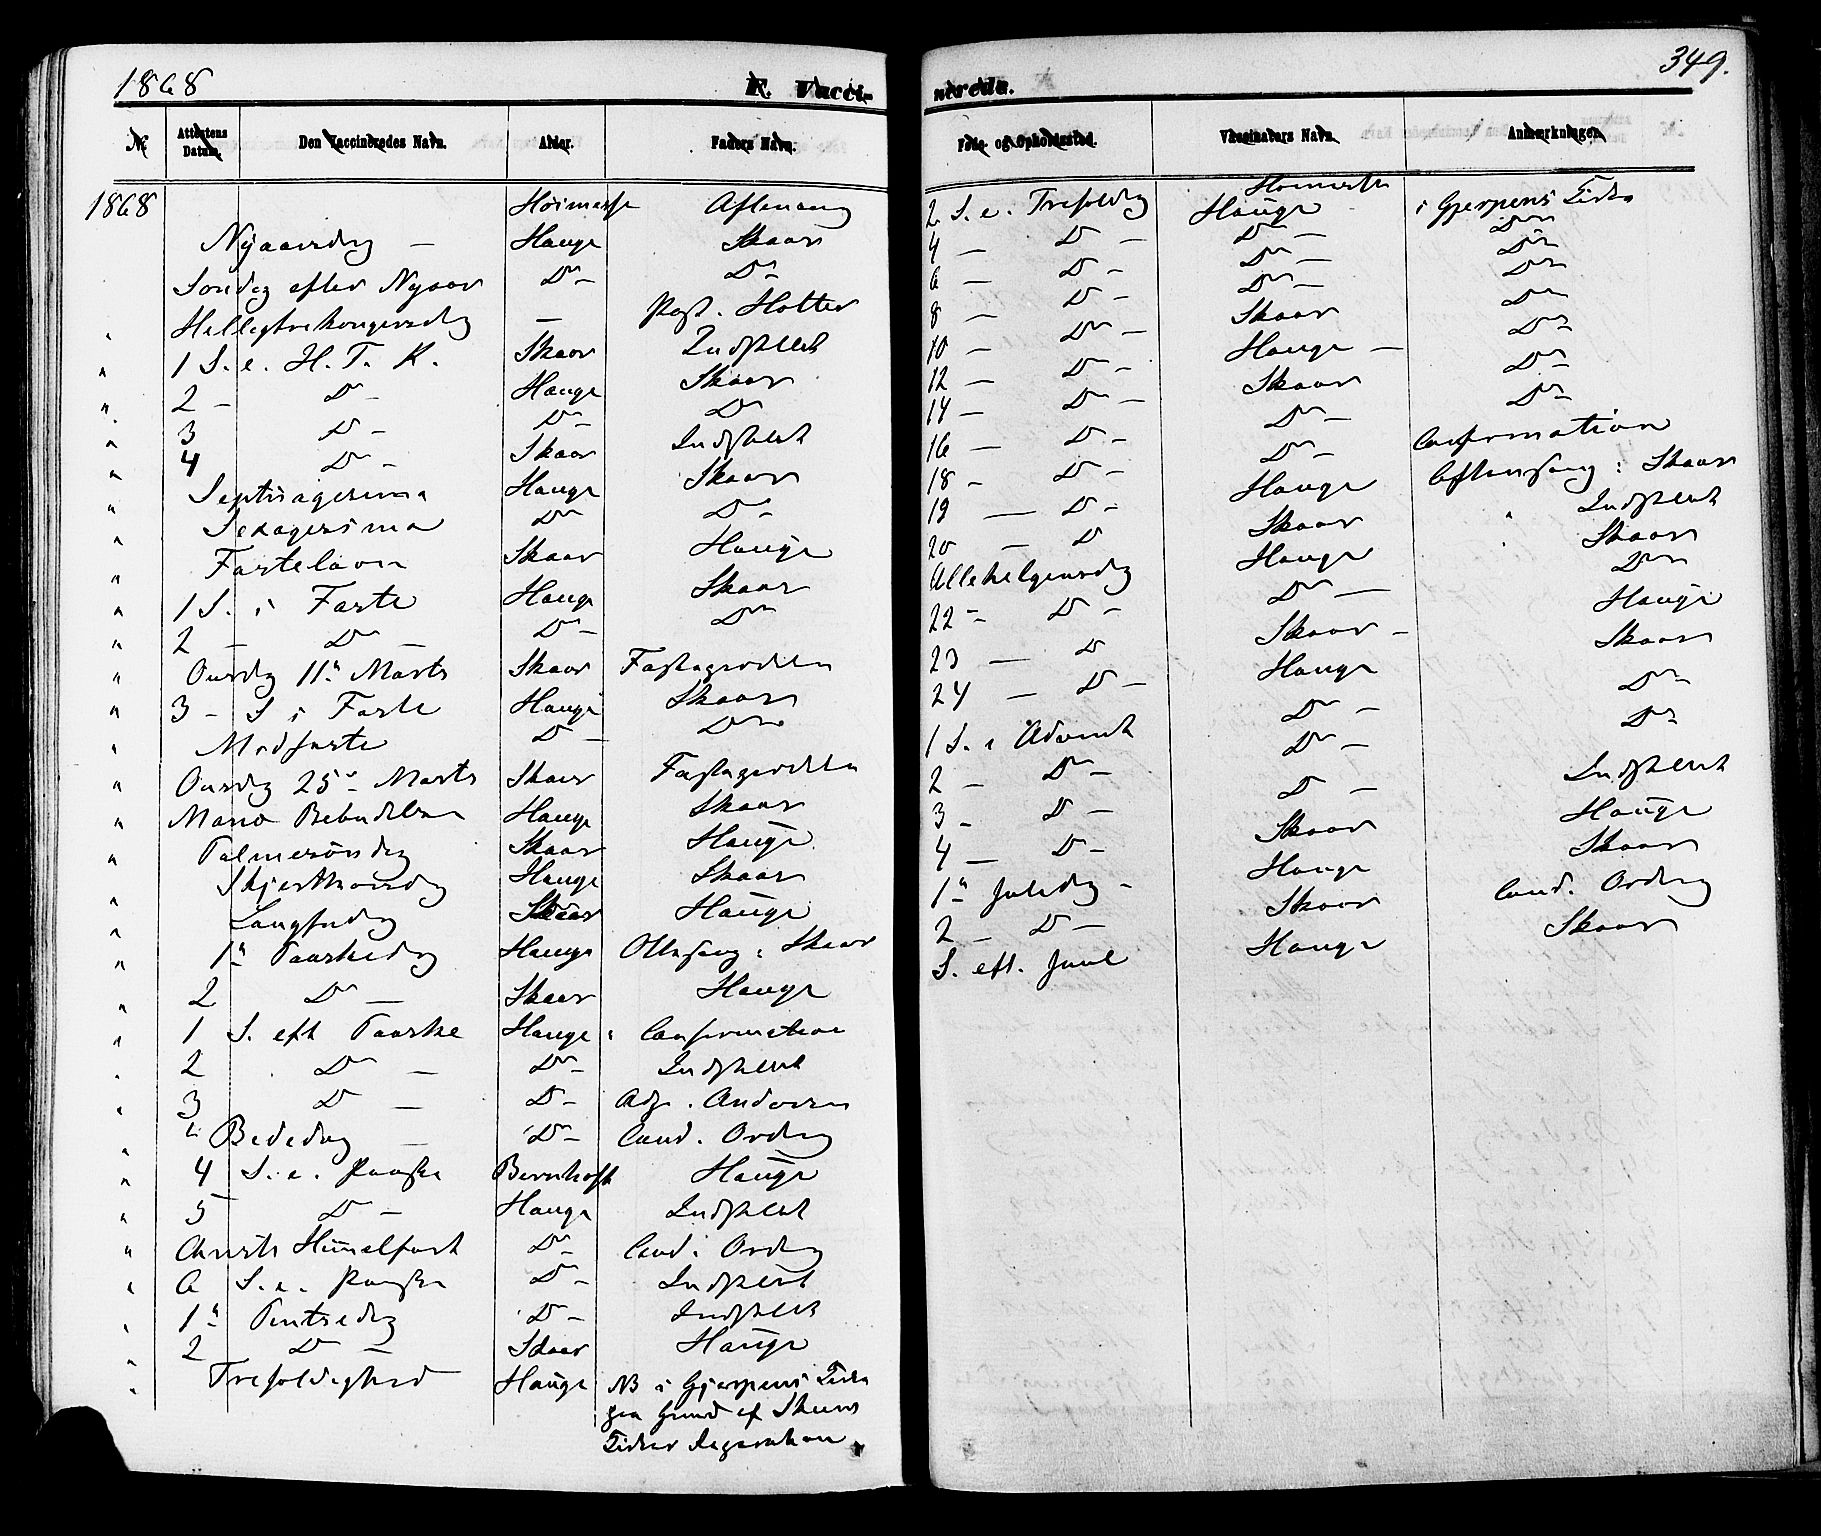 1868
F. Vacci-
№ Attestens Datum. Den Vaccineredes Navn. Alder. Faders Navn.
1868 Høimesse Aftensang
Nyaarsdag — Hauge Skaar
Søndag efter Nyaar Do - Do -
Helligtrekongersdag — Past. Holter
" 1 S. e. H. T. K. Skaar Indstillet
" 2 - Do - Hauge Skaar
" 3 Do - Do - Do
" 4 Do - Skaar Indstillet
" Septuagesima Hauge Skaar
" Sexagesima Do Do -
" Fastelavn Skaar Hauge
" 1 S. i Faste Hauge Skaar
" 2 - Do - Do - Do
" Onsdag 11te Marts Skaar Fasteprædiken
" 3 - S i Faste Hauge Skaar
" Midfaste Do - Do
" Onsdag 25 - Marts Skaar Fasteprædiken
" Mariæ Bebudelse Hauge Skaar
" Palmesøndag Skaar Hauge
" Skjærthorsdag Hauge Skaar
" Langfredag Skaar Hauge
" 1ste Paaskedag Hauge Skaar
" 2 Do - Skaar Hauge
" 1 S. eft Paaske Hauge : Confirmation
" 2 Do - Do - Indstillet
" 3 Do - Do - Adj. Andersen
" Bededag - Do - Cand. Ording
" 4 S. e. Paaske Bernhoft Hauge
" 5 Do - Hauge Indstillet
" Christi Himmelfart Do - Cand. Ording
" 6 S. e. Paaske Do - Indstillet
" 1ste Pintsedag Do - Indstillet
" 2 Do - Skaar Hauge
" Trefoldighed Hauge NB i Gjerpens Kirke
paa Grund af Skiens
Kirkes Reparation
349.
nerede.
Føde- og Opholdssted. Vaccinators Navn. Anmærkninger.
Høimesse
2 S. e. Trefoldig Hauge i Gjerpens Kirke
4 — Do - Do - Do
6 — Do - Do - Do
8 — Do - Do - Do
10 — Do - Skaar Do
12 — Do - Hauge - Do
14 — Do - Skaar Do
16 — Do - Do - Do
18 - Do - Do - Confirmation
19 — Do - Hauge Aftensang : Skaar
20 — Do Skaar " Indstillet
Allehelgensdag Hauge " Skaar
22 - Do - Do - Do
23 — Do Skaar - Hauge
24 — Do - Hauge Skaar
1 S. i Advent Do - Do
2 - Do - Do - Do
3 - Do - Do - Indstillet
4 — Do - Skaar Hauge
1ste Juledag - Hauge Skaar
2 - Do - Skaar Cand. Ording
S. eft. Juul Hauge Skaar